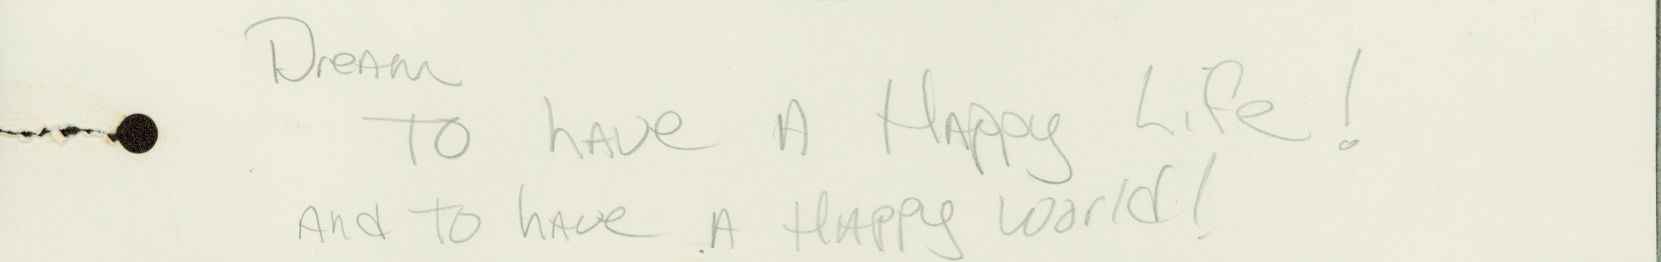 Dream
To have A Happy Life!
And To have A Happy World!